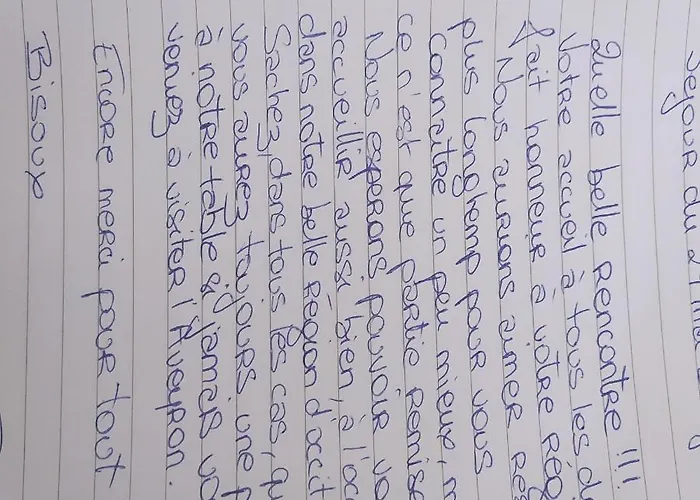 Séjour du
Quelle belle rencontre !!!
Votre accueil à tous les
fait honneur à votre
Nous aurions aimer
plus longtemp pour vous
connaître un peu mieux,
ce n'est que partie remise
Nous espérons pouvoir
accueillir aussi bien, à
dans notre belle région
Sachez, dans tous les cas,
vous aurez toujours une
à notre table si jamais
venez à visiter l'Aveyron.
Encore merci pour tout
Bisoux